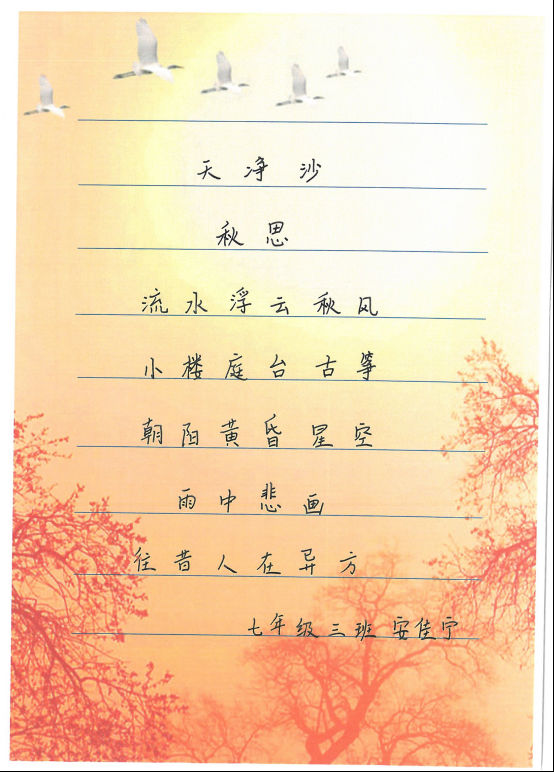 天净沙
秋思
流水浮云秋风
小楼庭台古筝
朝阳黄昏星空
雨中悲画
往昔人在异方
七年级三班 安佳宁